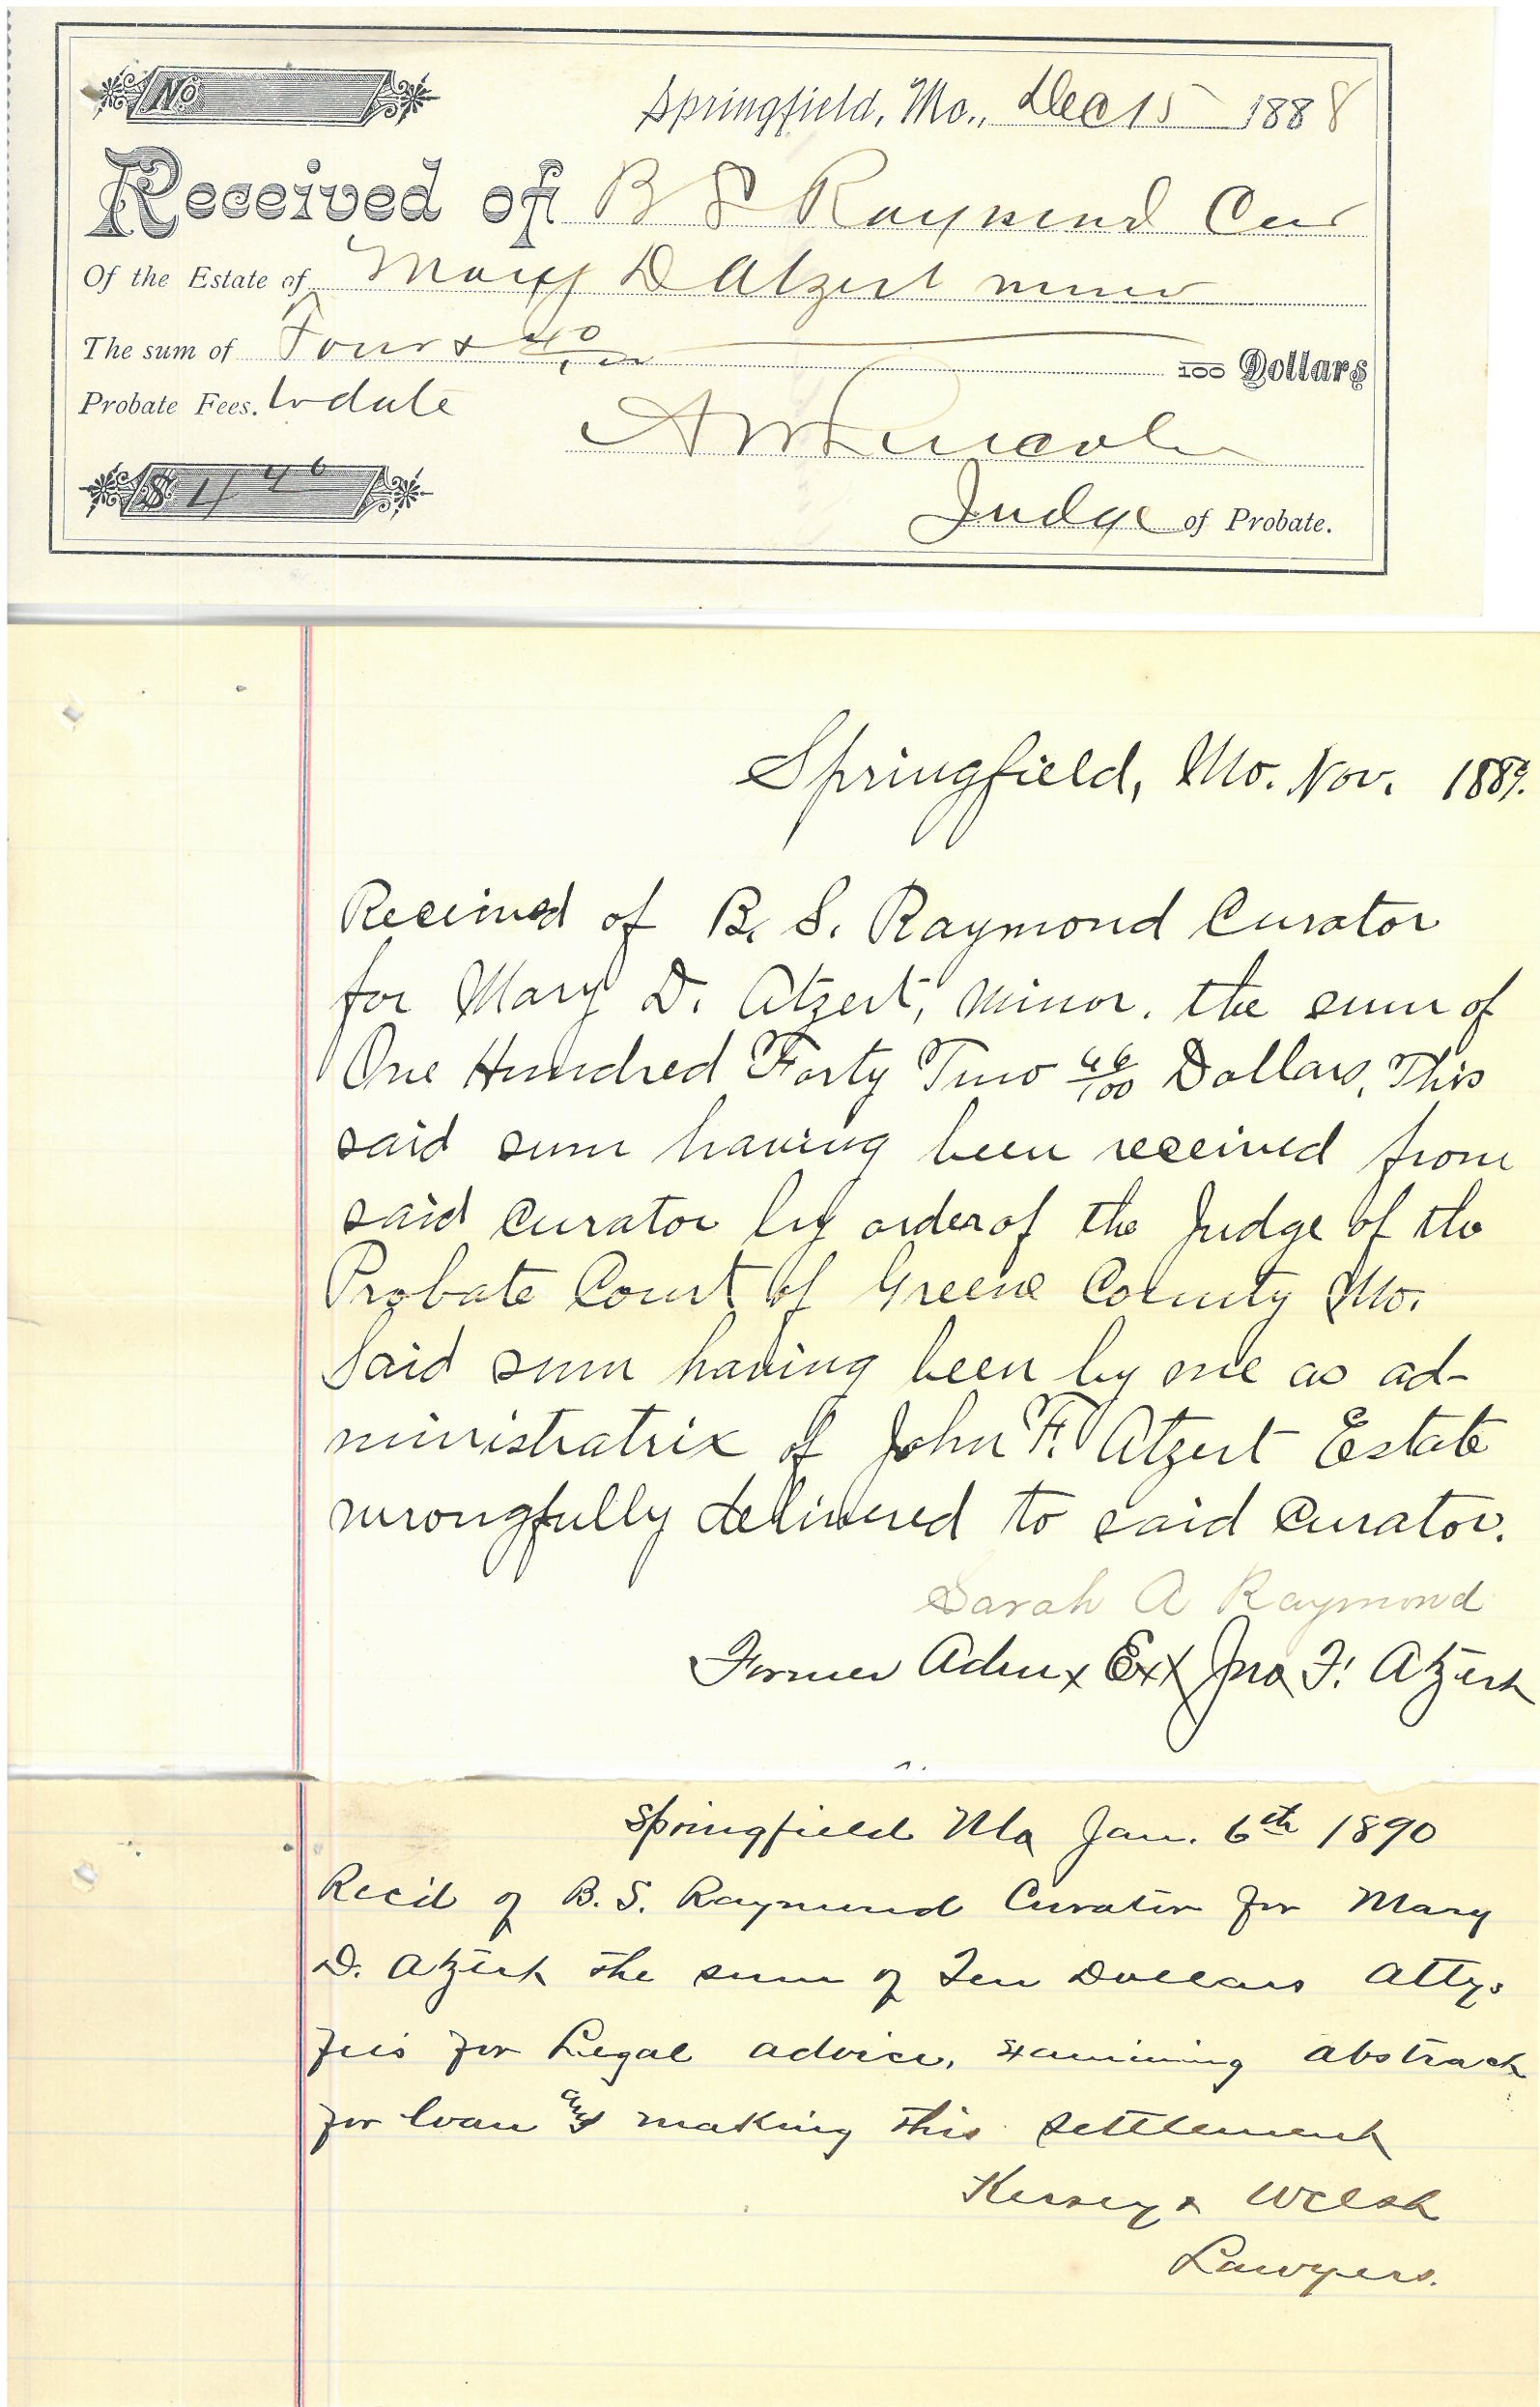 No
Springfield, Mo., Dec 15 1888
Received of B S Raymond Cur
Of the Estate of Mary D Atzert minor
The sum of Four & 40/100 100 Dollars
Probate Fees. to date
A W Lincoln
$ 4 40
Judge of Probate.
Springfield, Mo. Nov. 1889.
Received of B. S. Raymond Curator
for Mary D. Atzert, minor, the sum of
One Hundred Forty Two 46/100 Dollars, This
said sum having been received from
said curator by order of the Judge of the
Probate Court of Greene County Mo.
Said sum having been by me as ad-
ministratrix of John F. Atzert Estate
wrongfully delivered to said Curator.
Sarah A Raymond
Former Admx Est Jno F. Atzert
Springfield Mo Jan. 6th 1890
Rec'd of B. S. Raymond Curator for Mary
D. Atzert the sum of Ten Dollars Attys
fees for Legal advice, examining abstract
for loan and making this settlement
Kersey & Welsh
Lawyers.